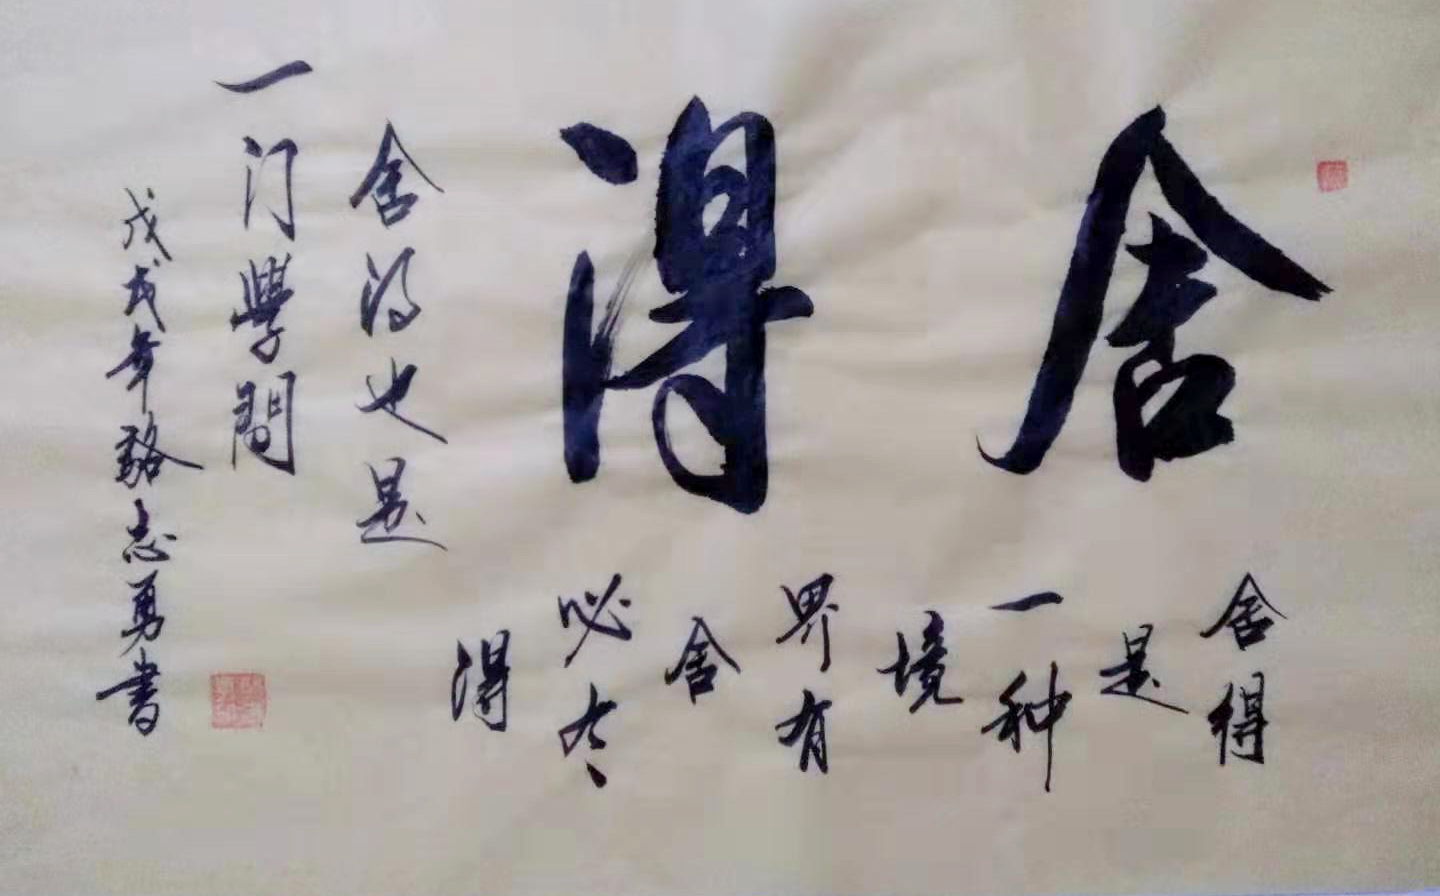 舍得
舍得
是
一种
境
界有
舍
必有
得
舍得也是
一门學問
戊戌年駱志勇書